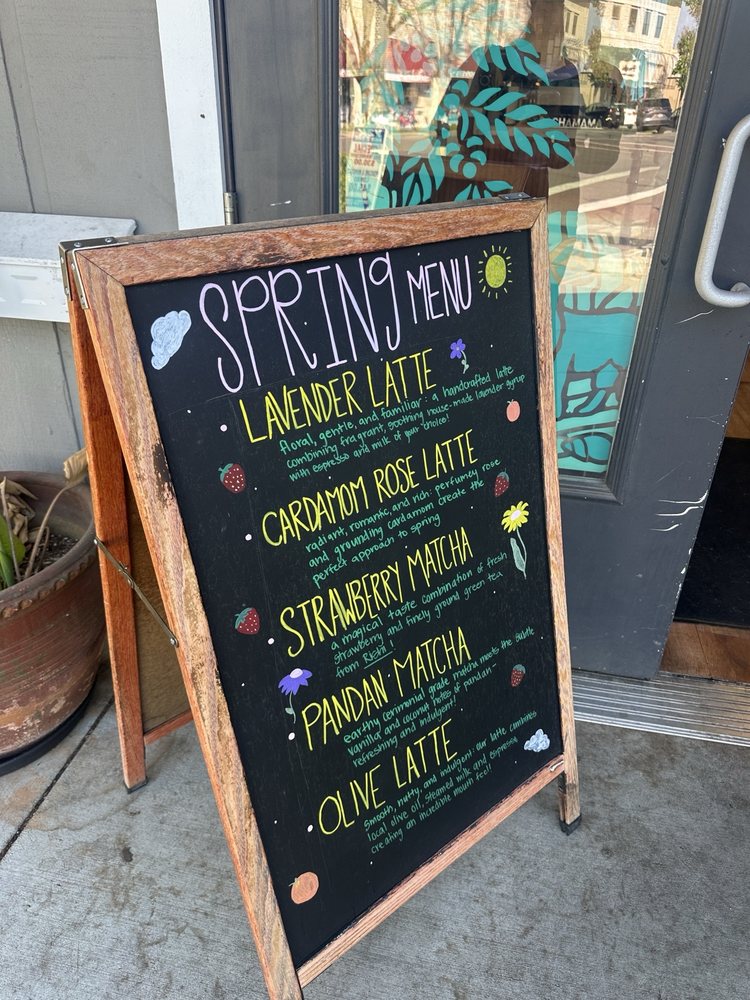 SPRING MENU
LAVENDER LATTE
floral, gentle, and familiar: a handcrafted latte
combining fragrant, soothing house-made lavender syrup
with espresso and milk of your choice!
CARDAMOM ROSE LATTE
radiant, romantic, and rich: perfumey rose
and grounding cardamom create the
perfect approach to spring
STRAWBERRY MATCHA
a magical taste combination of fresh
strawberry and finely ground green tea
from Rishi!
PANDAN MATCHA
earthy cerimonial grade matcha meets the subtle
vanilla and coconut notes of pandan -
refreshing and indulgent!
OLIVE LATTE
Smooth, nutty, and indulgent: our latte combines
local olive oil, steamed milk and espresso
creating an incredible mouth feel!